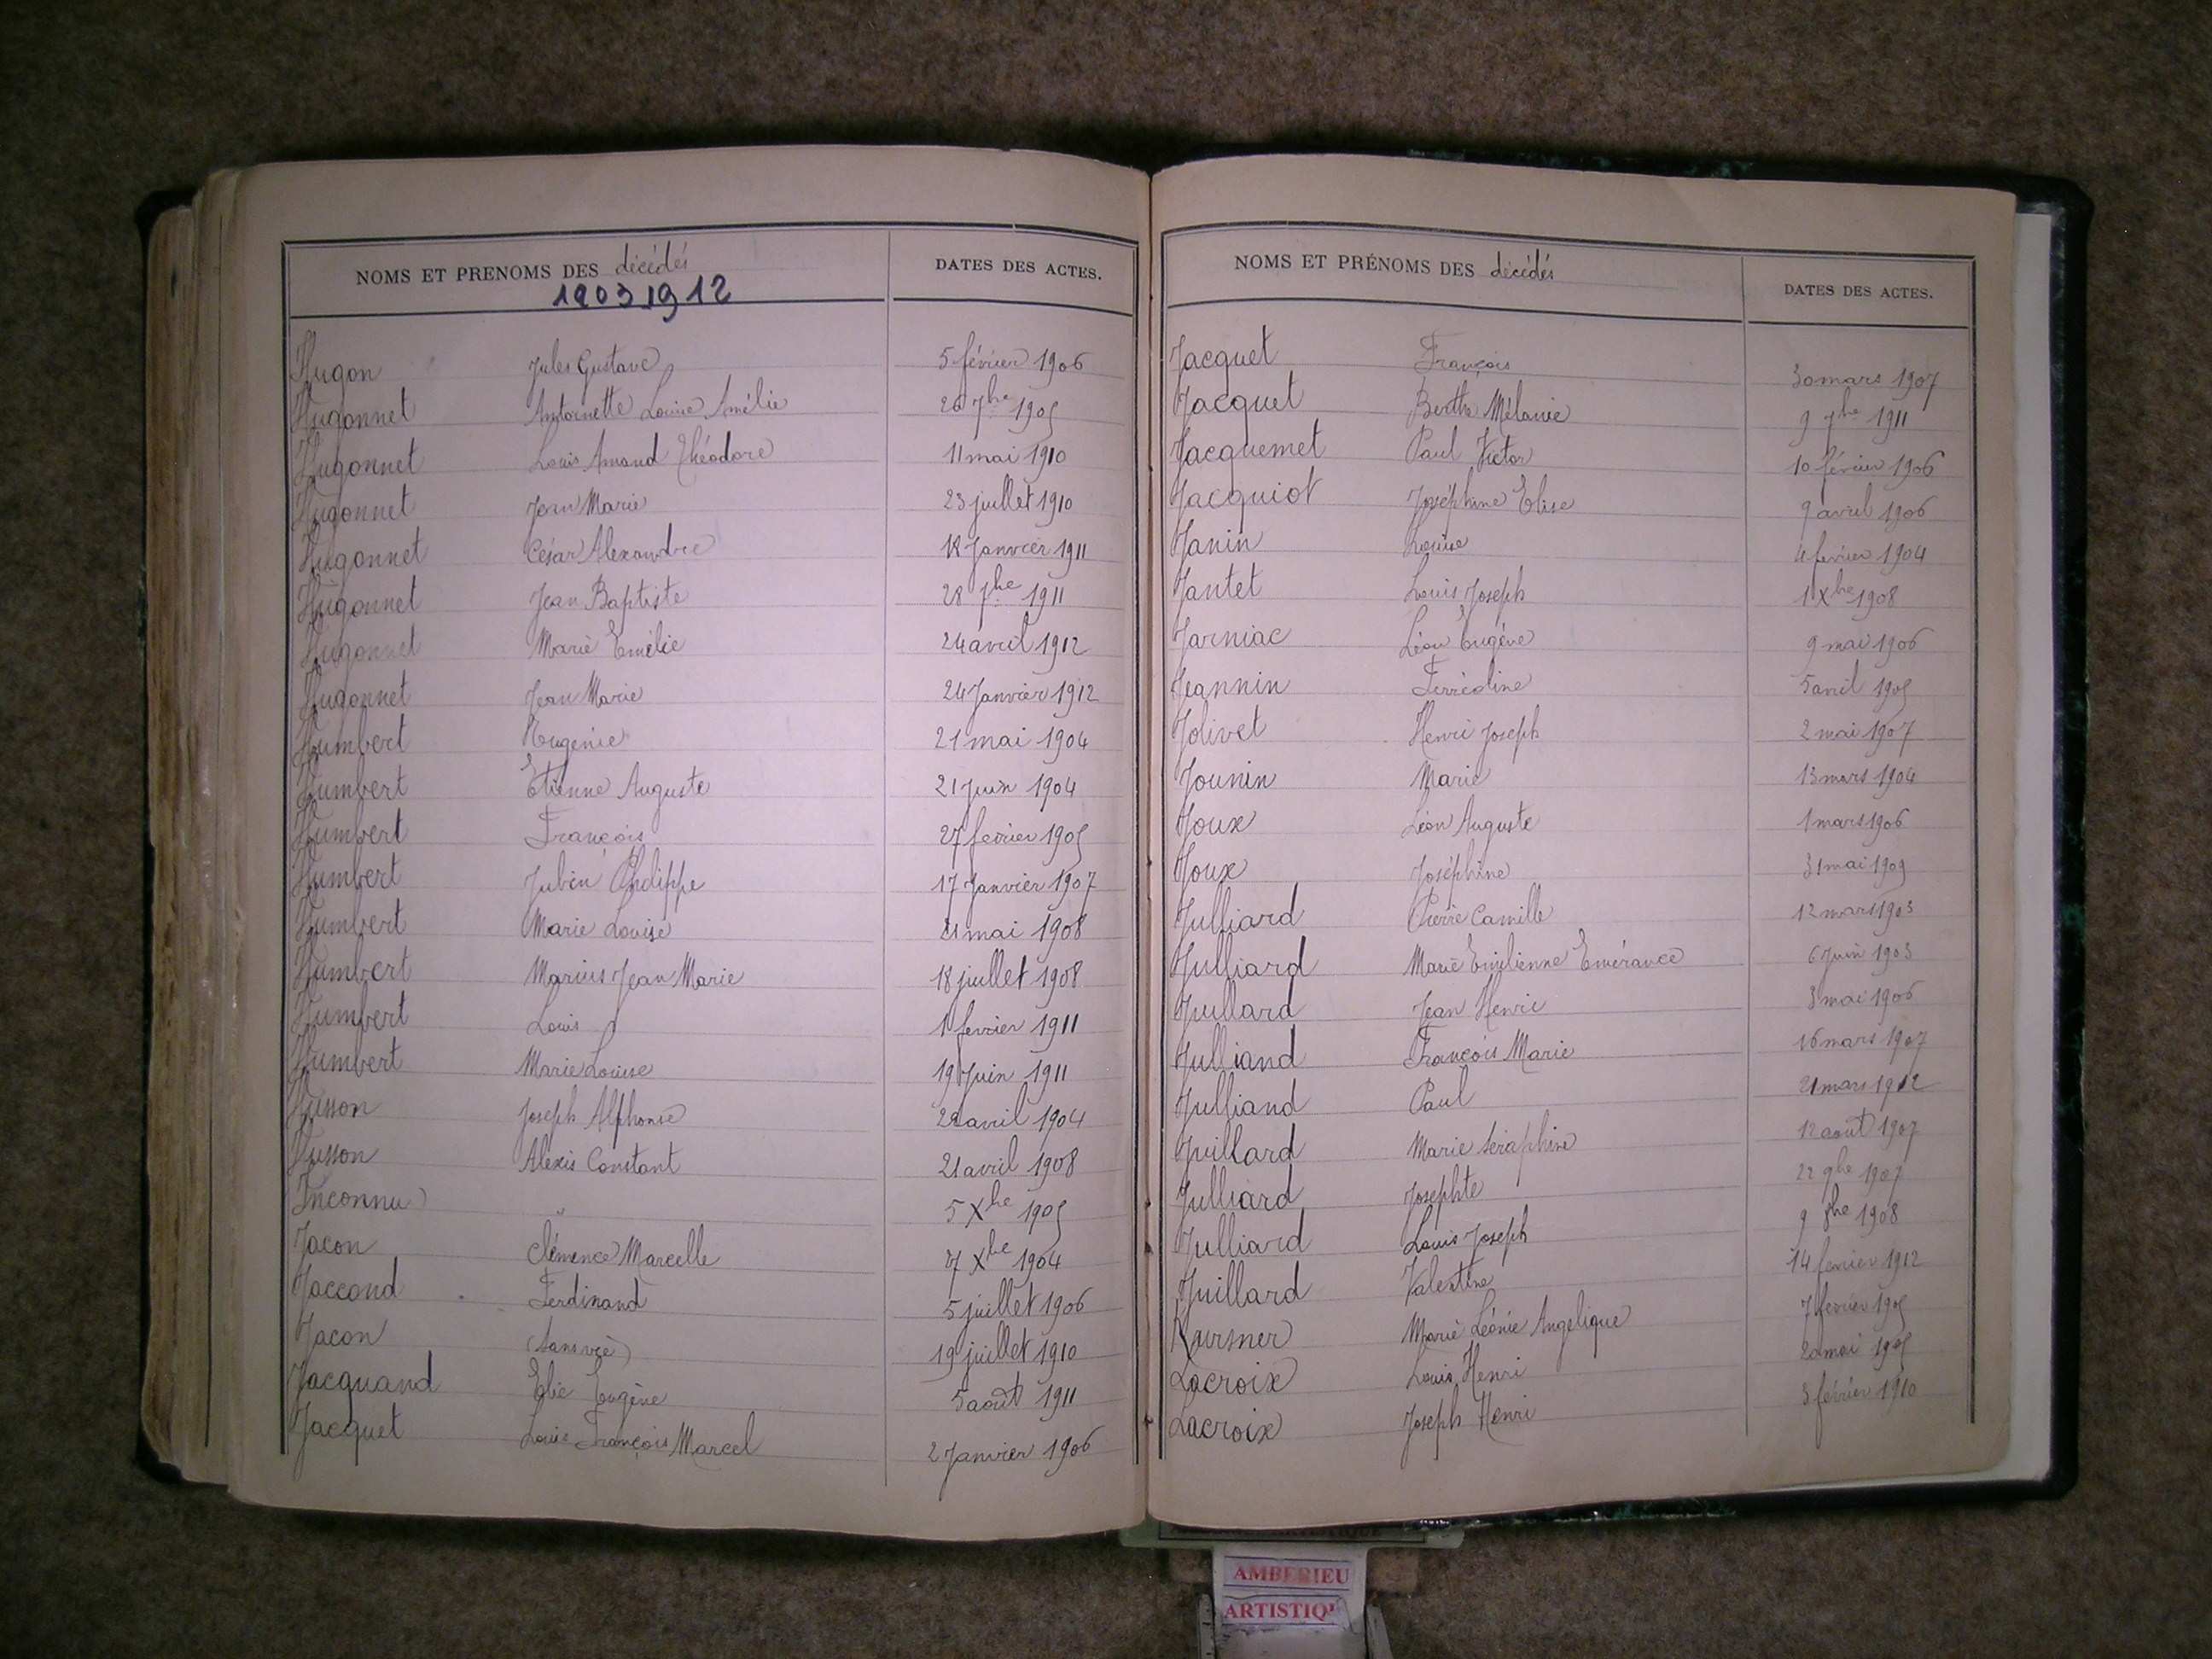 NOMS ET PRENOMS DES décédés
1903 1912
DATES DES ACTES.
Hugon Jules Gustave 5 février 1906
Hugonnet Antoinette Louise Amélie 26 7bre 1905
Hugonnet Louis Amand Théodore 11 mai 1910
Hugonnet Jean Marie 23 juillet 1910
Hugonnet César Alexandre 18 Janvier 1911
Hugonnet Jean Baptiste 28 7bre 1911
Hugonnet Marie Emélie 24 avril 1912
Hugonnet Jean Marie 24 Janvier 1912
Humbert Eugenie 21 mai 1904
Humbert Etienne Auguste 21 Juin 1904
Humbert François 27 fevrier 1905
Humbert Philippe 17 Janvier 1907
Humbert Marie Louise mai 1908
Humbert Marius Jean Marie 18 juillet 1908
Humbert Louis 1 fevrier 1911
Humbert Marie Louise 19 Juin 1911
Husson Joseph Alphonse avril 1904
Husson Alexis Constant 21 avril 1908
Inconnu " 5 Xbre 1905
Jacon Clémence Marcelle 7 Xbre 1904
Jaccond Ferdinand 5 juillet 1906
Jacon (sans vie) 19 juillet 1910
Jacquand Elie Eugène 5 août 1911
Jacquet Louis François Marcel 2 Janvier 1906
NOMS ET PRÉNOMS DES décédés
DATES DES ACTES.
Jacquet François 30 mars 1907
Jacquet Berthe Mélanie 9 7bre 1911
Jacquemet Paul Victor 10 février 1906
Jacquiot Joséphine Elise 9 avril 1906
Janin Louise 4 fevrier 1904
Jantet Louis Joseph 1 Xbre 1908
Jarniac Léon Eugéne 9 mai 1906
Jeannin Ferréoline 5 avril 1905
Jolivet Henri Joseph 2 mai 1907
Jounin Marie 13 mars 1904
Joux Léon Auguste 1 mars 1906
Joux Joséphine 31 mai 1909
Julliard Pierre Camille 12 mars 1903
Julliard Marie Emilienne Emérance 6 Juin 1903
Juillard Jean Henri 3 mai 1906
Julliand François Marie 16 mars 1907
Julliand Paul 21 mars 1912
Juillard Marie Séraphine 12 août 1907
Julliard Josephte 22 9bre 1907
Julliard Louis Joseph 9 8bre 1908
Juillard Valentine 14 fevrier 1912
Marie Léonie Angélique 7 fevrier 1905
Lacroix Louis Henri mai 1905
Lacroix Joseph Henri 3 février 1910
AMBERIEU
ARTISTIQ